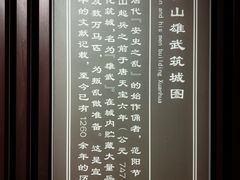 山雄武筑城图
an and his men building Xuanhua
唐代『安史之乱』的始作俑者，范阳节
山起兵之前于唐天宝六年（公元747
筑城名为『雄武』在城内贮藏大量兵
及数万马匹，为叛乱做准备。这是宣
年的文献记载，至今已有1260余年的历